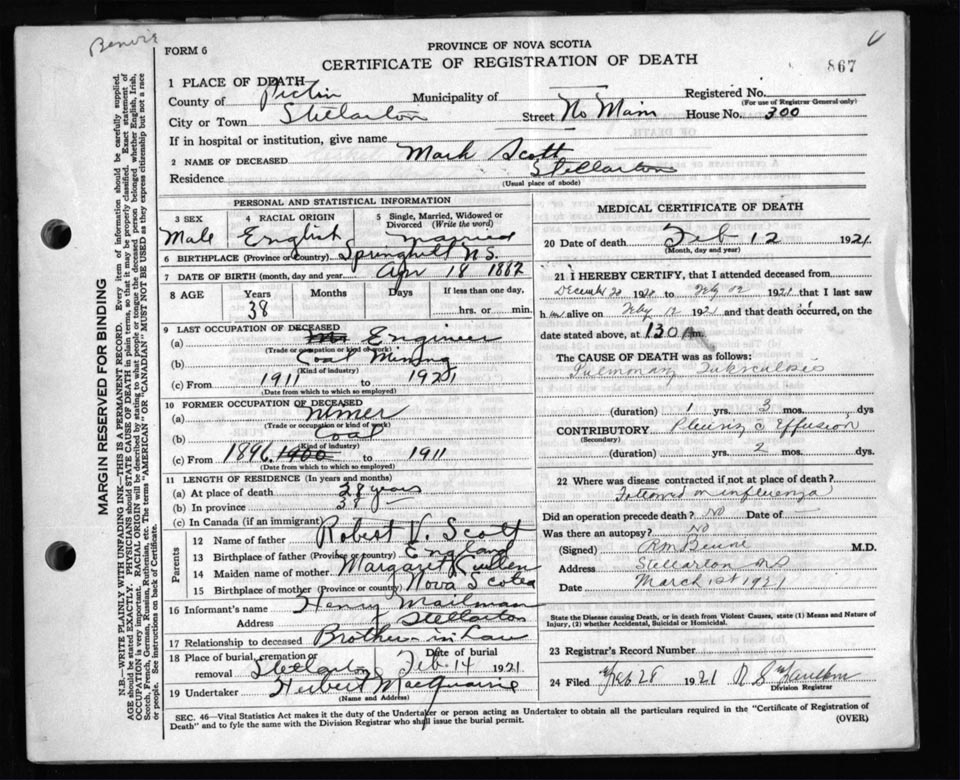 Benvie
FORM 6
PROVINCE OF NOVA SCOTIA
CERTIFICATE OF REGISTRATION OF DEATH
867
1 PLACE OF DEATH
County of Pictou Municipality of — Registered No.
(For use of Registrar General only)
City or Town Stellarton Street No Main House No. 300
If in hospital or institution, give name
2 NAME OF DECEASED Mark Scott
Residence Stellarton
(Usual place of abode)
PERSONAL AND STATISTICAL INFORMATION
3 SEX Male
4 RACIAL ORIGIN English
5 Single, Married, Widowed or Divorced (Write the word) Married
6 BIRTHPLACE (Province or Country) Springhill N.S.
7 DATE OF BIRTH (month, day and year) Apr 18 1882
8 AGE Years 38 Months Days If less than one day, hrs. or min.
9 LAST OCCUPATION OF DECEASED
(a) Engineer
(Trade or occupation or kind of work)
(b) Coal Mining
(Kind of industry)
(c) From 1911 to 1921
(Date from which to which so employed)
10 FORMER OCCUPATION OF DECEASED
(a) Miner
(Trade or occupation or kind of work)
(b) Coal
(Kind of industry)
(c) From 1896 1900 to 1911
(Date from which to which so employed)
11 LENGTH OF RESIDENCE (In years and months)
(a) At place of death 28 years
(b) In province 38 —
(c) In Canada (if an immigrant)
Parents
12 Name of father Robert V. Scott
13 Birthplace of father (Province or country) England
14 Maiden name of mother Margaret Cullen
15 Birthplace of mother (Province or country) Nova Scotia
16 Informant's name Henry Mailman
Address Stellarton
17 Relationship to deceased Brother-in-Law
18 Place of burial, cremation or removal Stellarton Date of burial Feb 14 1921
19 Undertaker Herbert MacQuarrie
(Name and Address)
MEDICAL CERTIFICATE OF DEATH
20 Date of death Feb 12 1921
(Month, day and year)
21 I HEREBY CERTIFY, that I attended deceased from
December 20 1920 to Feby 12 1921 that I last saw
h im alive on Feby 12 1921 and that death occurred, on the
date stated above, at 130 Am.
The CAUSE OF DEATH was as follows:
Pulmonary Tuberculosis
(duration) 1 yrs. 3 mos. dys
CONTRIBUTORY Pleurisy c Effusion
(Secondary)
(duration) yrs. 2 mos. dys.
22 Where was disease contracted if not at place of death?
Followed on influenza
Did an operation precede death? NO Date of —
Was there an autopsy? NO
(Signed) M.D.
Address Stellarton NS
Date March 1st 1921
State the Disease causing Death, or in death from Violent Causes, state (1) Means and Nature of Injury, (2) whether Accidental, Suicidal or Homicidal.
23 Registrar's Record Number
24 Filed Feb 28 1921
Division Registrar
SEC. 46—Vital Statistics Act makes it the duty of the Undertaker or person acting as Undertaker to obtain all the particulars required in the "Certificate of Registration of
Death" and to fyle the same with the Division Registrar who shall issue the burial permit.
(OVER)
MARGIN RESERVED FOR BINDING
N.B.—WRITE PLAINLY WITH UNFADING INK—THIS IS A PERMANENT RECORD. Every item of information should be carefully supplied.
AGE should be stated EXACTLY. PHYSICIANS should STATE CAUSE OF DEATH in plain terms, so that it may be properly classified. Exact statement of
OCCUPATION is very important. RACIAL ORIGIN will be described by stating to what people or tongue the deceased person belonged whether English, Irish,
Scotch, French, German, Russian, Ruthenian, etc. The terms "AMERICAN" or "CANADIAN" MUST NOT BE USED as they express citizenship but not a race
or people. See instructions on back of Certificate.